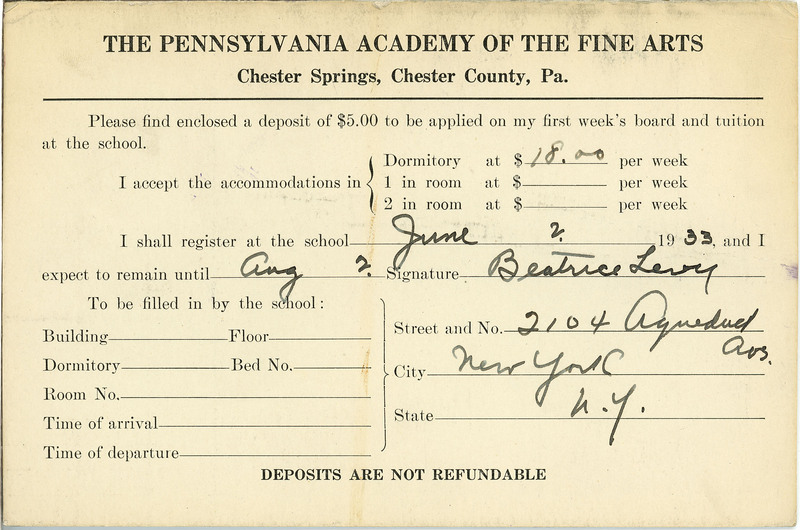 THE PENNSYLVANIA ACADEMY OF THE FINE ARTS
Chester Springs, Chester County, Pa.
Please find enclosed a deposit of $5.00 to be applied on my first week's board and tuition
at the school.
Dormitory at $ 18.00 per week
I accept the accommodations in 1 in room at $ per week
2 in room at $ per week
I shall register at the school June ? 1933, and I
expect to remain until Aug ?. Signature Beatrice Levy
To be filled in by the school:
Street and No. 2104 Aqueduct
Ave.
Building Floor
Dormitory Bed No.
City New York
Room No.
State N.Y.
Time of arrival
Time of departure
DEPOSITS ARE NOT REFUNDABLE